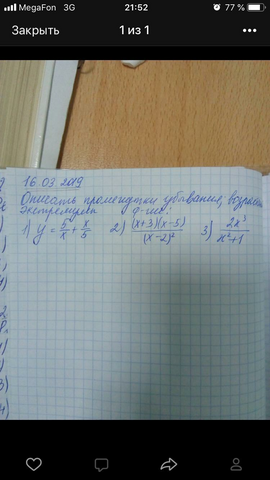 MegaFon 3G 21:52 77 %
Закрыть 1 из 1
16.03 2019
Описать промежутки убывания, возраст
экстремумы ф-ции.
1) y = 5/x + x/5 2) (x+3)(x-5)/(x-2)² 3) 2x³/x²+1